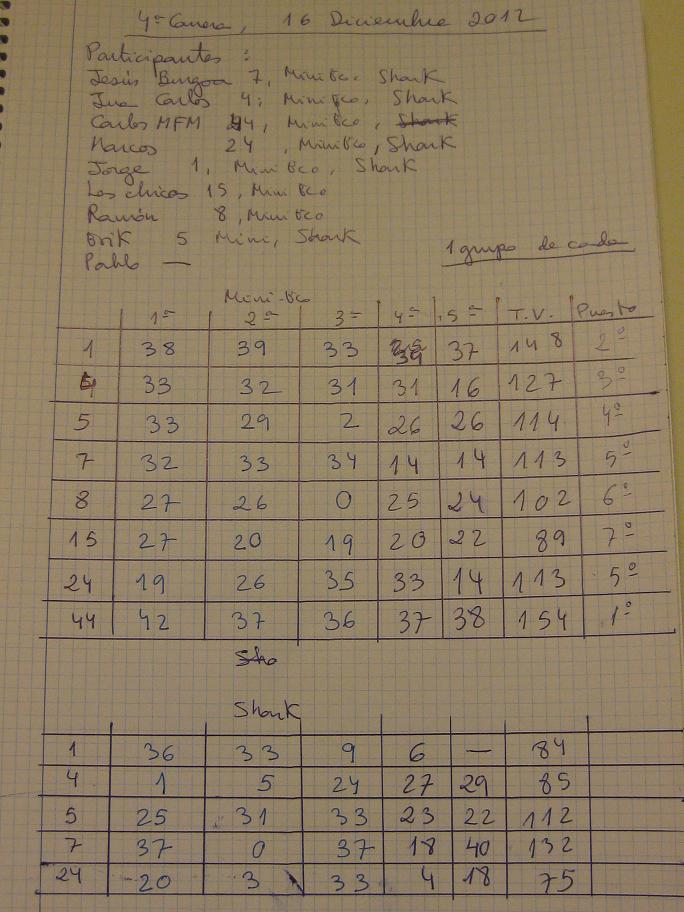 4ª Carrera, 16 Diciembre 2012
Participantes :
Jesús Burgoa 7, Mini Eco, Shark
Jua Carlos 4, Mini Eco, Shark
Carlos MFM 44, Mini Eco, Shark
Marcos 24, Mini Eco, Shark
Jorge 1, Mini Eco, Shark
Los chicos 15, Mini Eco
Ramón 8, Mini Eco
Erik 5 Mini, Shark
Pablo —
1 grupo de cada
Mini-Eco
1ª 2ª 3ª 4ª 5ª T.V. Puesto
1 38 39 33 39 37 148 2º
4 33 32 31 31 16 127 3º
5 33 29 2 26 26 114 4º
7 32 33 34 14 14 113 5º
8 27 26 0 25 24 102 6º
15 27 20 19 20 22 89 7º
24 19 26 35 33 14 113 5º
44 42 37 36 37 38 154 1º
Sha
Shark
1 36 33 9 6 — 84
4 1 5 24 27 29 85
5 25 31 33 23 22 112
7 37 0 37 18 40 132
24 20 3 33 4 18 75